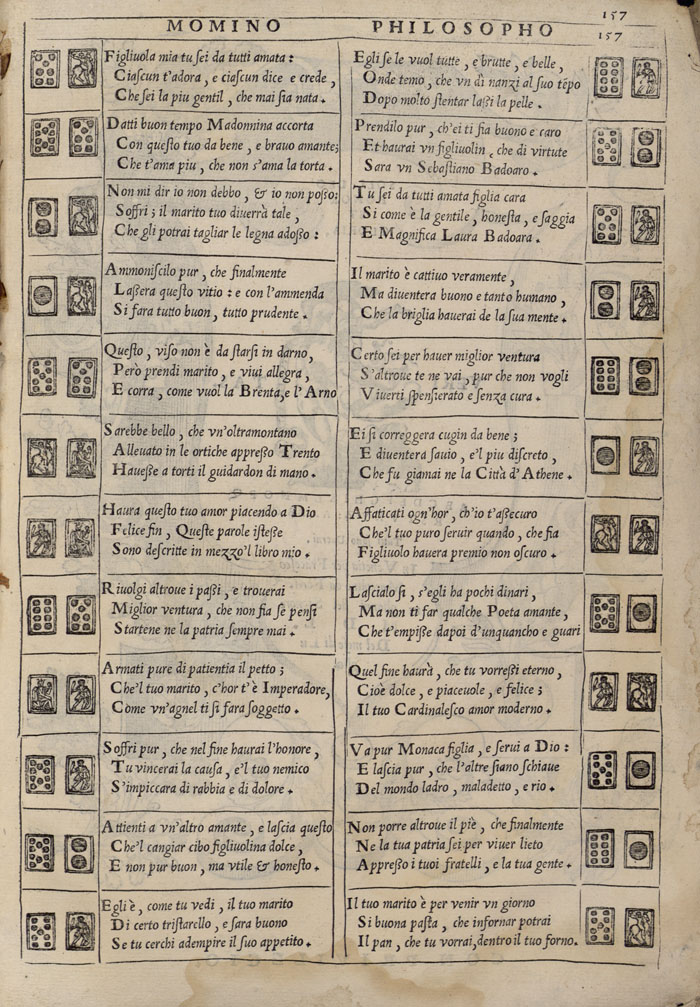 157
MOMINO PHILOSOPHO
157
Figliuola mia tu sei da tutti amata :
Ciaſcun t'adora, e ciaſcun dice e crede,
Che ſei la piu gentil, che mai ſia nata.
Datti buon tempo Madonnina accorta
Con queſto tuo da bene, e brauo amante;
Che t'ama piu, che non s'ama la torta.
Non mi dir io non debbo, & io non poſſo:
Soffri; il marito tuo diuerrà tale,
Che gli potrai tagliar le legna adoſſo :
Ammoniſcilo pur, che finalmente
Laſſera queſto vitio : e con l'ammenda
Si fara tutto buon, tutto prudente.
Queſto, viſo non è da ſtarſi in darno,
Però prendi marito, e viui allegra,
E corra, come vuol la Brenta, e l'Arno
Sarebbe bello, che vn'oltramontano
Alleuato in le ortiche appreſſo Trento
Haueſſe a torti il guidardon di mano.
Haura queſto tuo amor piacendo a Dio
Felice fin, Queſte parole iſteſſe
Sono deſcritte in mezzo'l libro mio.
Riuolgi altroue i paſſi, e trouerai
Miglior ventura, che non fia ſe penſi
Startene ne la patria ſempre mai.
Armati pure di patientia il petto;
Che'l tuo marito, c'hor t'è Imperadore,
Come vn'agnel ti ſi fara ſoggetto.
Soffri pur, che nel fine haurai l'honore,
Tu vincerai la cauſa, e'l tuo nemico
S'impiccara di rabbia e di dolore.
Attienti a vn'altro amante, e laſcia queſto
Che'l cangiar cibo figliuolina dolce,
E non pur buon, ma vtile & honeſto.
Egli è, come tu vedi, il tuo marito
Di certo triſtarello, e ſara buono
Se tu cerchi adempire il ſuo appetito.
Egli ſe le vuol tutte, e brutte, e belle,
Onde temo, che vn dì nanzi al ſuo tēpo
Dopo molto ſtentar laſſi la pelle.
Prendilo pur, ch'ei ti fia buono e caro
Et haurai vn figliuolin, che di virtute
Sara vn Sebaſtiano Badoaro.
Tu ſei da tutti amata figlia cara
Si come è la gentile, honeſta, e ſaggia
E Magnifica Laura Badoara.
Il marito è cattiuo veramente,
Ma diuentera buono e tanto humano,
Che la briglia hauerai de la ſua mente.
Certo ſei per hauer miglior ventura
S'altroue te ne vai, pur che non vogli
Viuerti ſpenſierato e ſenza cura.
Ei ſi correggera cugin da bene;
E diuentera ſauio, e'l piu diſcreto,
Che fu giamai ne la Città d'Athene.
Affaticati ogn'hor, ch'io t'aſſecuro
Che'l tuo puro ſeruir quando, che fia
Figliuolo hauera premio non oſcuro.
Laſcialo ſi, s'egli ha pochi dinari,
Ma non ti far qualche Poeta amante,
Che t'empiſſe dapoi d'unquancho e guari
Quel fine haurà, che tu vorreſti eterno,
Cioè dolce, e piaceuole, e felice;
Il tuo Cardinaleſco amor moderno.
Va pur Monaca figlia, e ſerui a Dio :
E laſcia pur, che l'altre ſiano ſchiaue
Del mondo ladro, maladetto, e rio.
Non porre altroue il piè, che finalmente
Ne la tua patria ſei per viuer lieto
Appreſſo i tuoi fratelli, e la tua gente.
Il tuo marito è per venir vn giorno
Si buona paſta, che infornar potrai
Il pan, che tu vorrai, dentro il tuo forno.